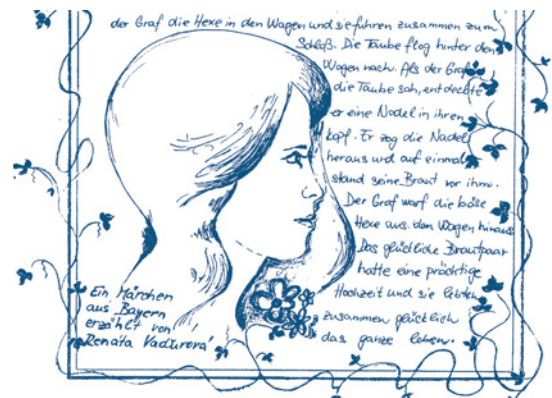 der Graf die Hexe in den Wagen und sie fuhren zusammen zum
Schloß. Die Taube flog hinter den
Wagen nach. Als der Graf
die Taube sah, entdeckte
er eine Nadel in ihren
Kopf. Er zog die Nadel
heraus und auf einmal
stand seine Braut vor ihm.
Der Graf warf die böse
Hexe aus den Wagen hinaus
Das glückliche Brautpaar
hatte eine prächtige
Hochzeit und sie lebten
zusammen glücklich
das ganze leben.
Ein Märchen
aus Bayern
erzählt von
Renáta Vadurová